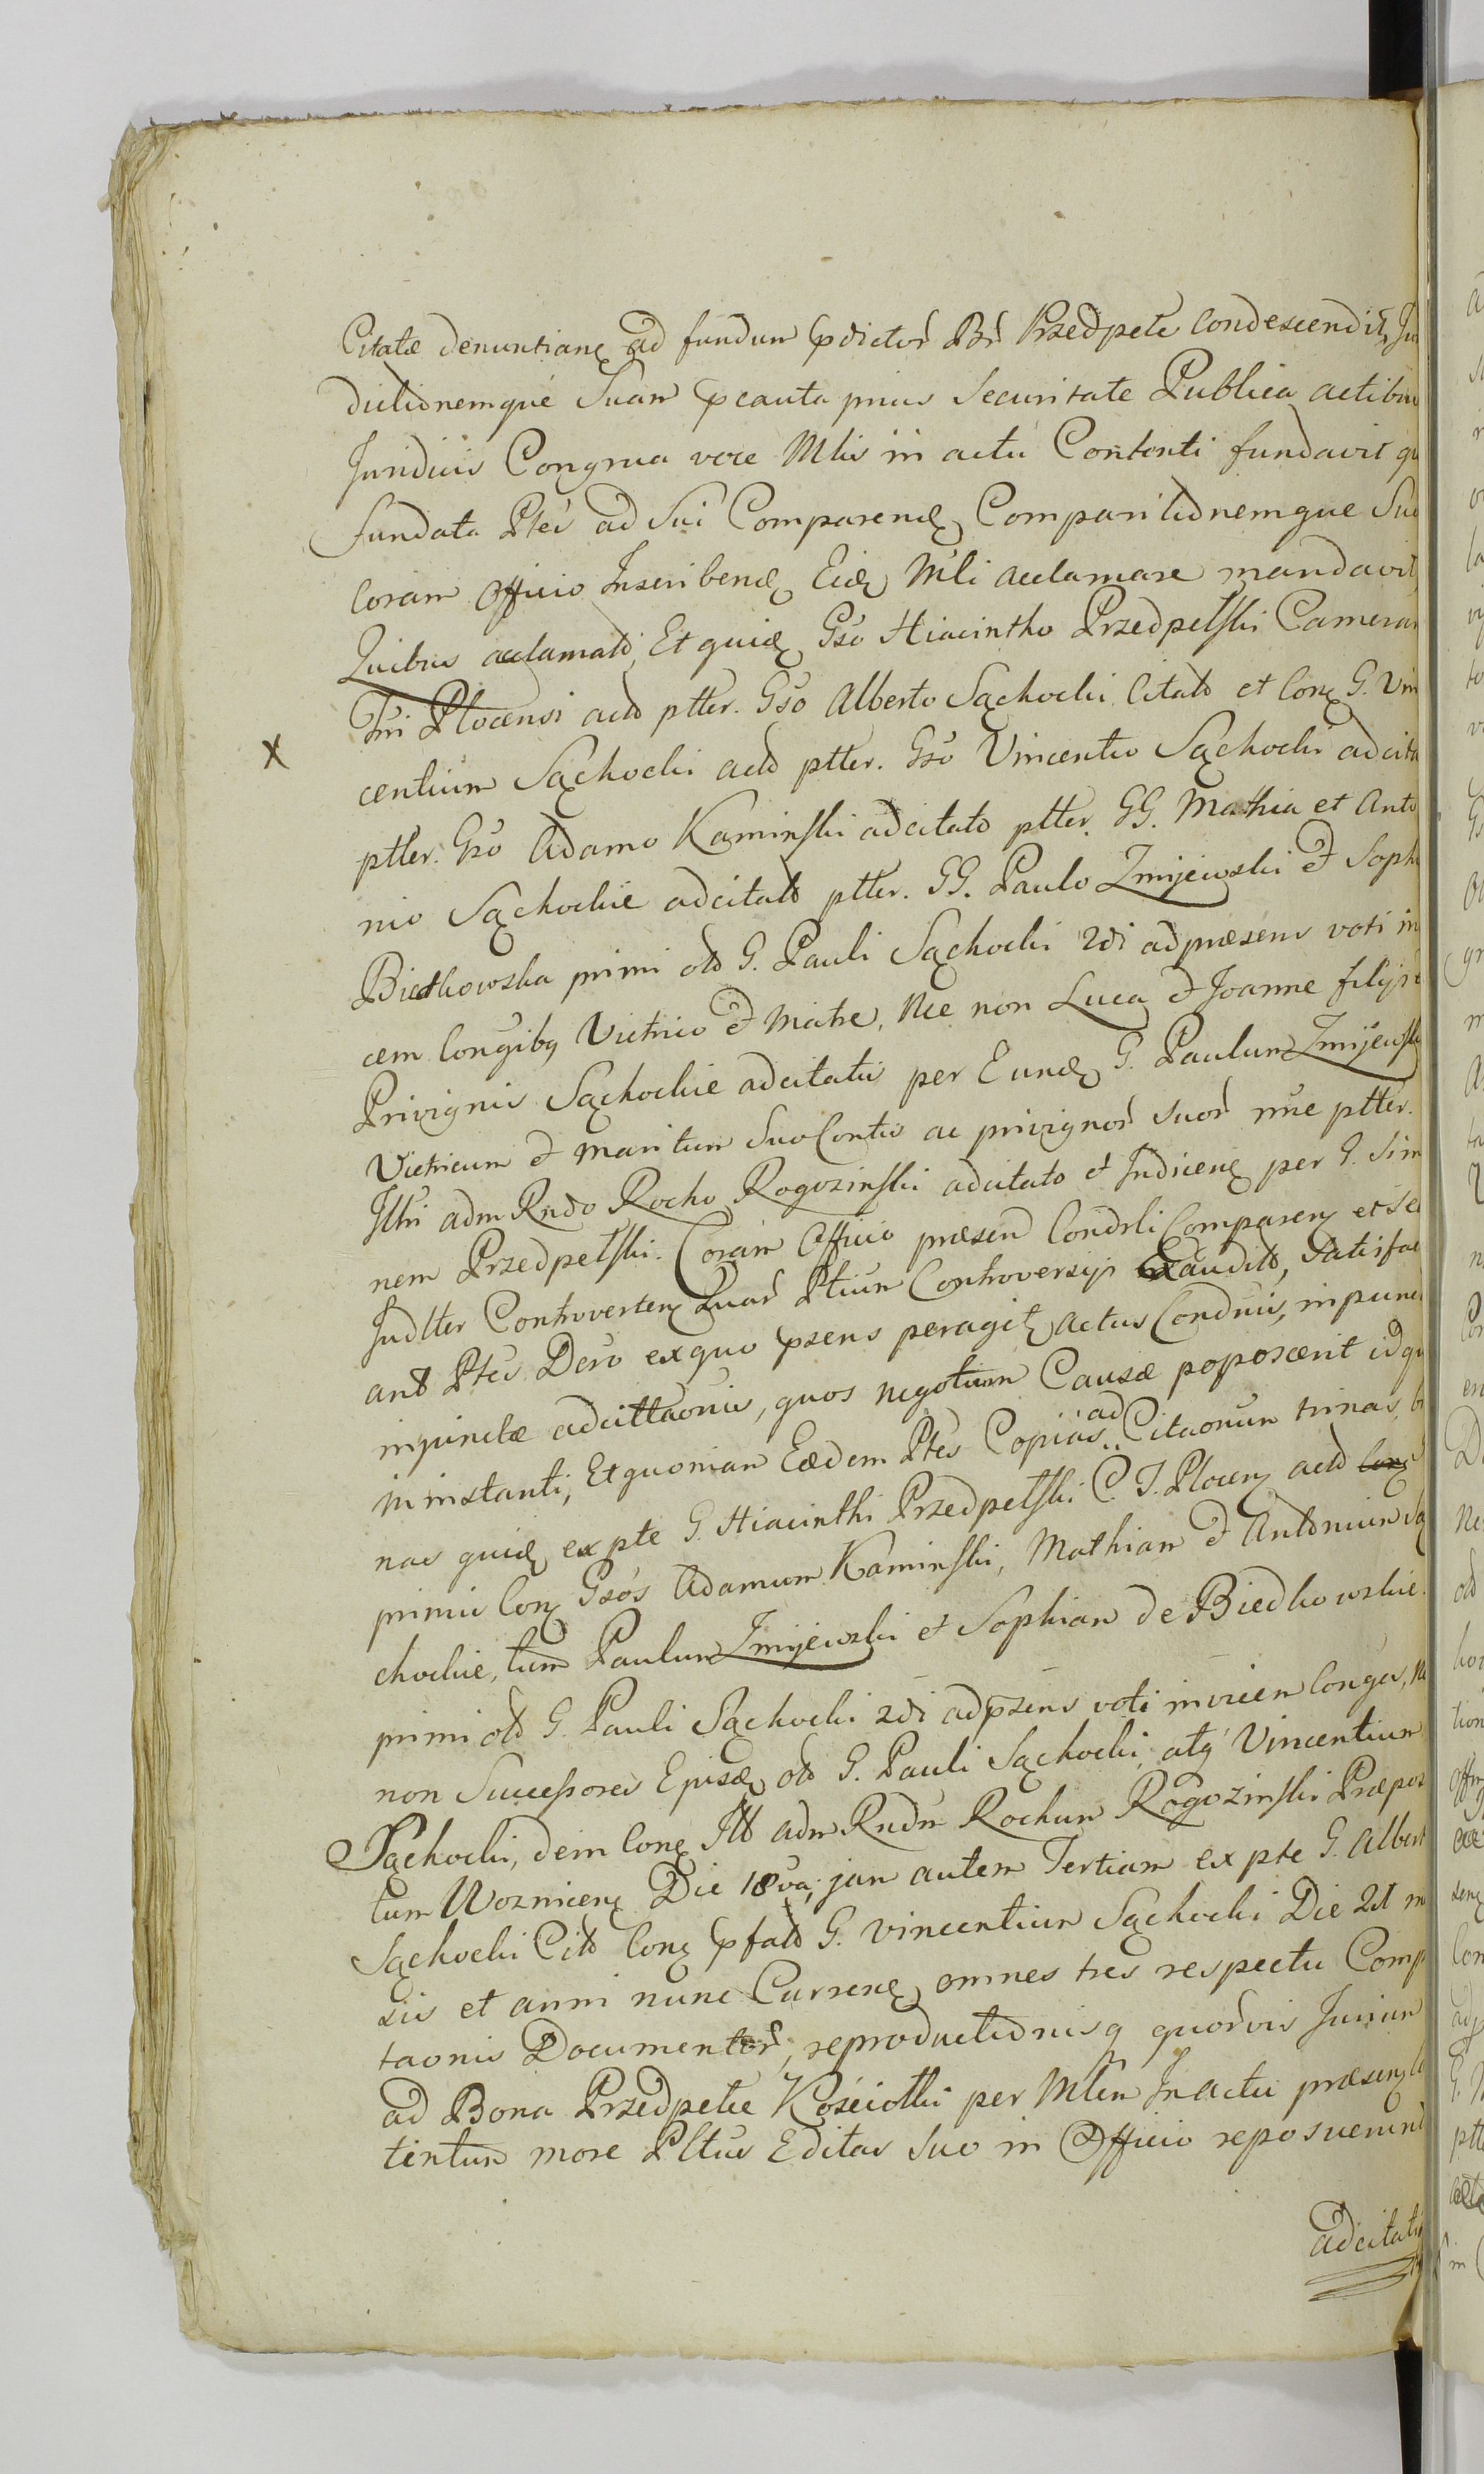 Citatæ denuntianę ad fundum p̃dictoꝝ Bꝝ Przedpełe Condescendit, Ju
dictionemque Suam p̃cauta prius Securitate Publica actibus
Juridicis Congrua voce Mlis in actu Contenti fundavit qu
fundata Ptes ad Sui Comparenđ Comparitionemque Sua
Coram Officio Inscribenđ Eiđ Mli acclamare mandavit,
Quibus acclamatis, Et quiđ Gso Hiacintho Przedpełski Camerar
Tri Plocensi actō ptter. Gso Alberto Sąchocki Citatō et Conę G. Vin
centium Sąchocki actō ptter. Gso Vincentio Sąchocki adcita
ptter. Gso Adamo Kaminski adcitato ptter. GG. Mathia et Anto
nio Sąchockie adcitatō ptter. GG. Paulo Zmijewski et Soph
Biedkowska primi olō G. Pauli Sąchocki 2di ad præsens voti in
cem Conġibꝯ Victrico et Matre, Nec non Luca et Joanne filijs
Privignis Sąchockie adcitatis per Eunđ G. Paulum Zmijewski
Victricum et maritum Suo Contis ac privignoꝝ suoꝝ nňe ptter.
Illři adm Rndo Rocho Rogozinski adcitato et Indicenę per G. Sim
nem Przedpełski. Coram Officio præsenⱦ Condrli Comparenę et Se
Judlter Controvertenę Quaꝝ Ptium Controversijs Exauditis, Satisfac
ant Ptes Dero ex quo p̃sens peragit actus Conđnis, inpunc
inpunctæ adcittaonis, quos negotium Causæ poposcerit idqu
in instanti; Et quoniam Eædem Ptes Copias ad Citaonum trinas, b
nas quiđ ex pte G. Hiacinthi Przedpełski C. T. Plocenę actō
primis Conę Gsōs Adamum Kaminski, Mathiam et Antonium Są
chockie, tum Paulum Zmijewski et Sophiam de Biedkowskie
primi olō G. Pauli Sąchocki 2di ad p̃sens voti invicem Conġes, Ne
non Successores Ejusđ olō G. Pauli Sąchocki, atqꝫ Vincentium
Sąchocki, dein Conę Illō adm Rndm Rochum Rogozinski Præpos
tum Woznicenę Die 18va, jam autem Tertiam ex pte G. Albert
Sąchocki Citō Conę p̃fatō G. Vincentium Sąchocki Die 21 m
sis et anni nunc Currenę omnes tres respectu Comp
taonis Documentoꝝ, reproductionisqꝫ quoꝝvis Jurium
ad Bona Przedpełe Kościołki per Mlem In actu præsenę
tentum more Pltus Editas Suo in Officio reposuerunt
adcitatis